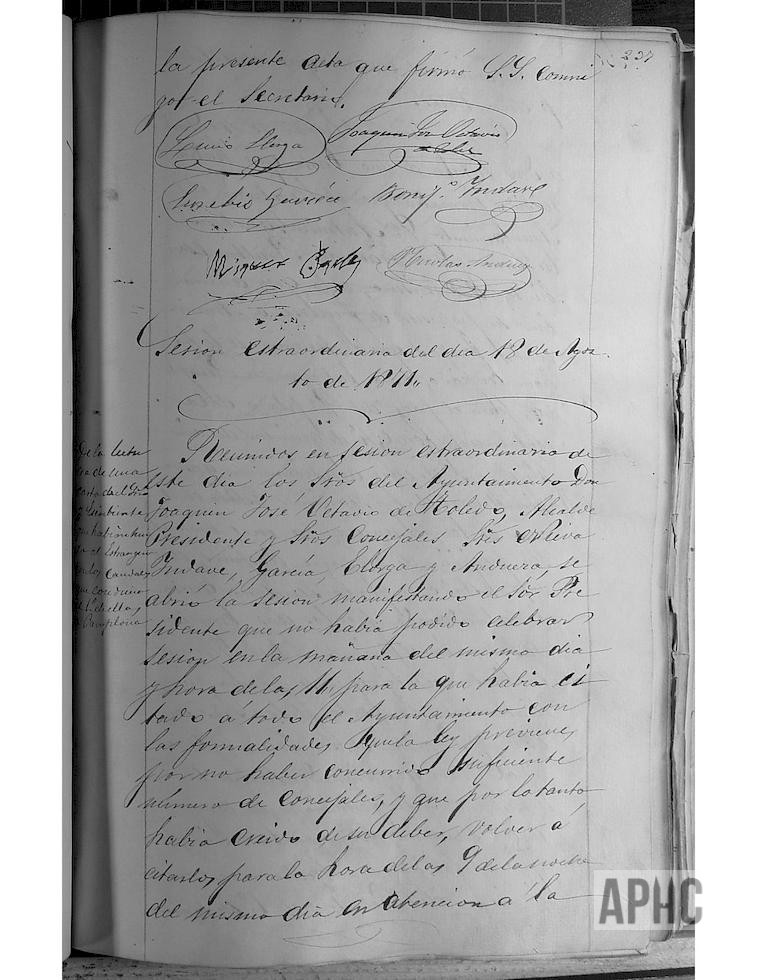 237
la presente acta que firmó S.S. conmi
go el Secretario.
Joaquin José Octavio
de Toledo
Eusebio García Bonif.º Yndave
Miguel
Nicolas Anduez
Sesion estraordinaria del dia 18 de Agos
to de 1871.,
De la lectu
ra de una
carta del Sr.
que habian hui
do al Estranger
con los Caudales
que condujo
Pamplona
Reunidos en sesion estraordinaria de
este dia los Sros del Ayuntamiento Don
Joaquin José Octavio de Toledo, Alcalde
Presidente y Sros Concejales Sres
Yndave, García, Elorga y Anduera, se
abrió la sesion manifestando el Sor Pre
sidente que no habia podido celebrar
sesion en la mañana del mismo dia
y hora de las 11, para la que habia ci
tado á todo el Ayuntamiento con
las formalidades que la ley previene,
por no haber concurrido suficiente
número de concejales, y que por lo tanto
habia creido de su deber, volver á
citarlos para la hora de las 9 de la noche
del mismo dia en atencion á la
APHC